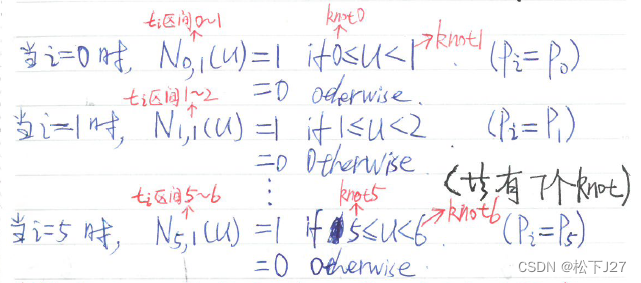 ti区间0~1 knot0
当i=0时, N0,1(u)=1 if 0≤u<1 →knot1 (Pi=P0)
=0 otherwise.
ti区间1~2
当i=1时, N1,1(u)=1 if 1≤u<2 (Pi=P1)
=0 otherwise
⋮ (共有7个knot)
ti区间5~6 knot5
当i=5时, N5,1(u)=1 if 5≤u<6 →knot6 (Pi=P5)
=0 otherwise.
CSDN @松下J27